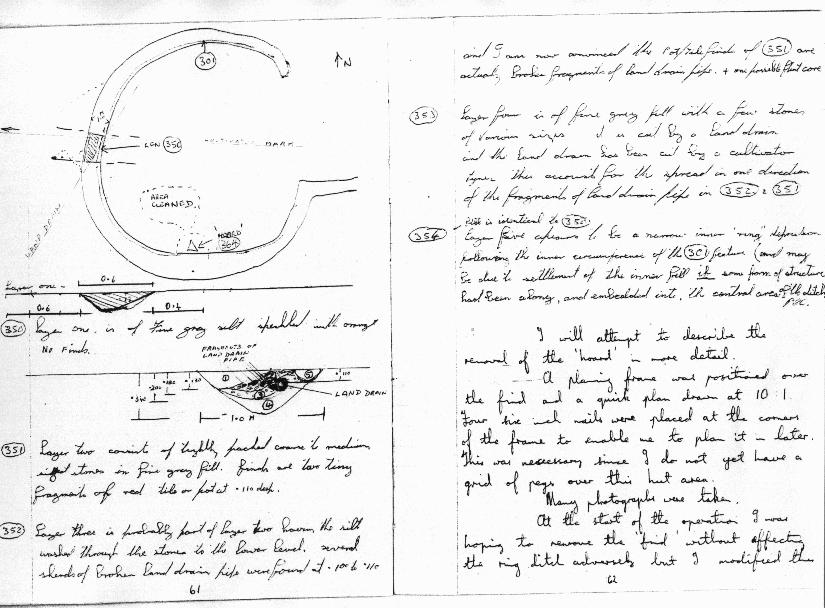 301
↑N
LGN 350
DARK
AREA
CLEANED
HOARD
364
LAND DRAIN
Layer one -
0.6
0.6
0.4
350 Layer one is of Fine grey silt speckled with orange
No Finds.
FRAGMENTS OF
LAND DRAIN
PIPE
1
5
3
4
.110
LAND DRAIN
1.0 M
351 Layer two consists of tightly packed coarse to medium
stones in fine grey fill. Finds are two tiny
fragments of red tile or pot at .110 deep.
352 Layer three is probably part of layer two having the silt
washed through the stones to the lower level. Several
sherds of broken land drain pipe were found at .100 to .110
61
and I am now convinced the pot/tile finds of 351 are
actually broken fragments of land drain pipe. + one possible flint core
353 Layer four is of fine grey fill with a few stones
of various sizes. It is cut by a land drain
and the land drain has been cut by a cultivator
tyne. This accounts for the spread in one direction
of the fragments of land drain pipe in 352 & 351
Fill is identical to 350
354 Layer five appears to be a narrow inner 'ring' depression
following the inner circumference of the 301 feature (and may
be due to settlement of the inner fill if some form of structure
had been along, and embedded into, the central area of the ditch
I will attempt to describe the
removal of the 'hoard' in more detail.
A planing frame was positioned over
the find and a quick plan drawn at 10:1.
Four six inch nails were placed at the corners
of the frame to enable me to plan it in later.
This was necessary since I do not yet have a
grid of pegs over this hut area.
Many photographs were taken.
At the start of the operation I was
hoping to remove the 'find' without affecting
the ring ditch adversely but I modified this
62